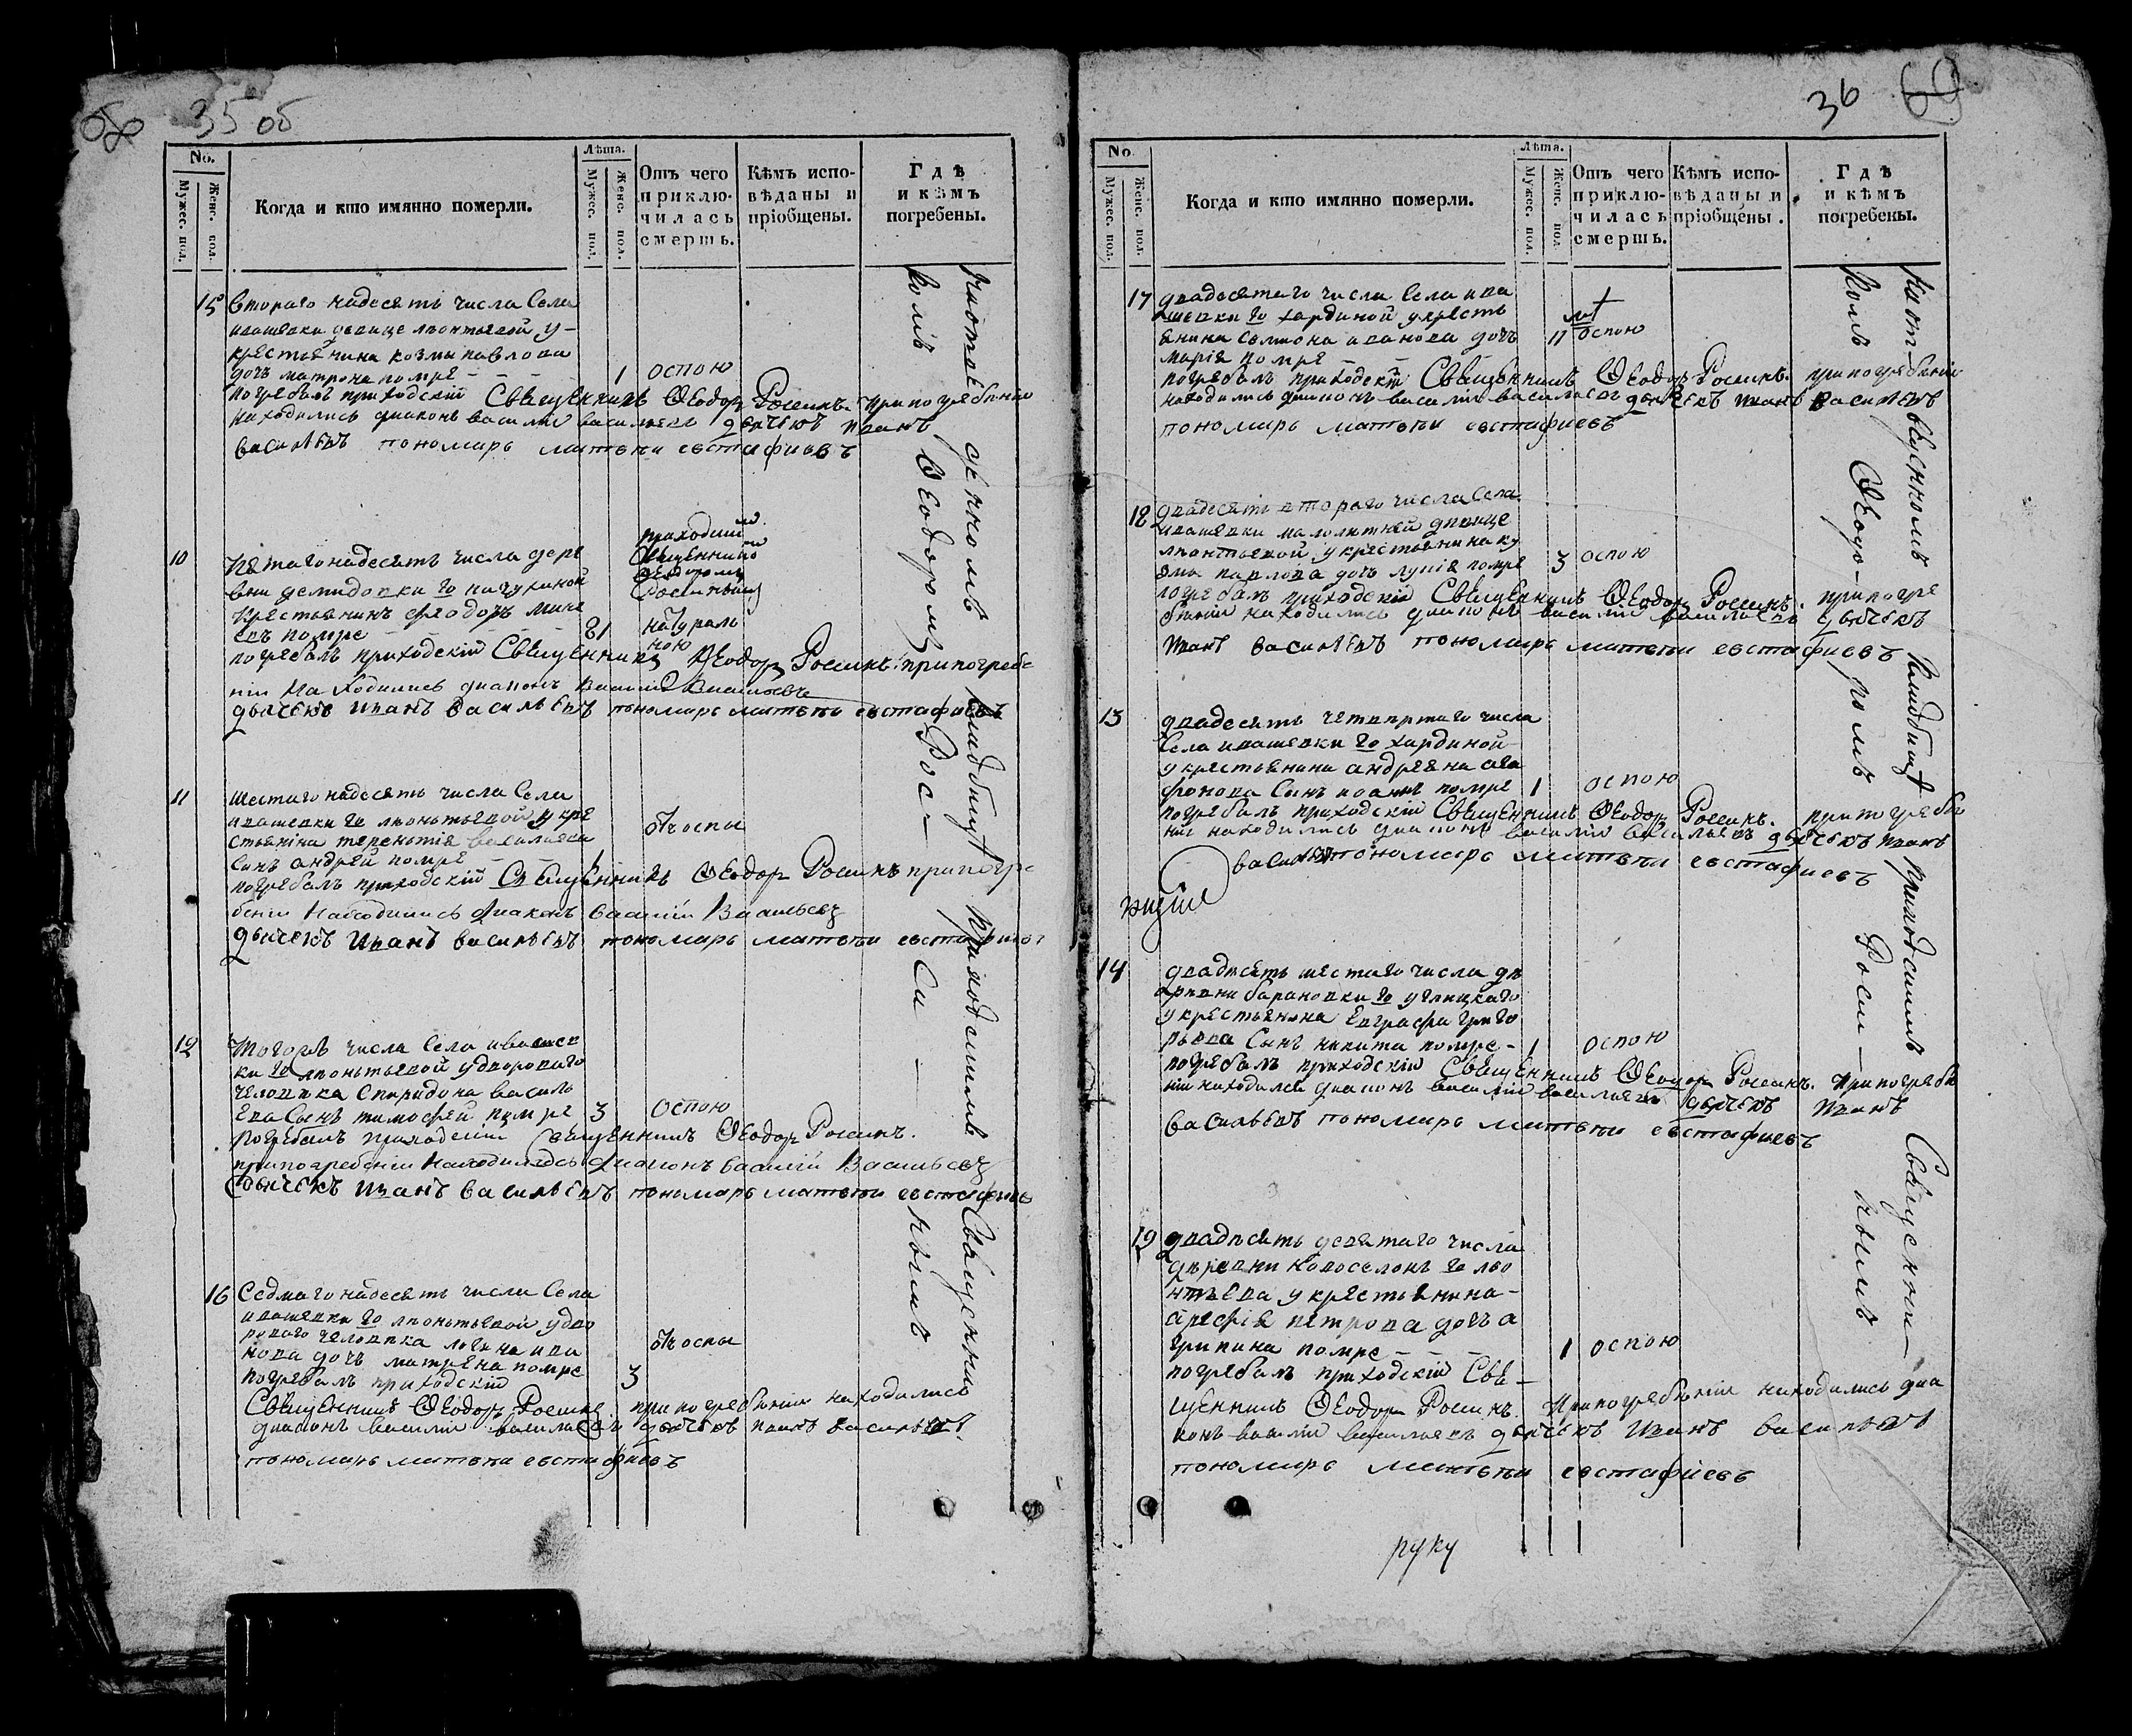 35 об
No.
Мужес. пол.
Женс. пол.
Когда и кто имянно померли.
Лѣта.
Мужес. пол.
Женс. пол.
Отъ чего приключилась смерть.
Кѣмъ исповѣданы и пріобщены.
Гдѣ и кѣмъ погребены.
15 втораго надесять числа Села
ивашевки девице леонтьевой у-
крестьянина козмы павлова
дочь матрона помре - - - 1 оспою
погребалъ приходскій Священникъ Ѳеодоръ Росинъ. При погребеніи
находились диаконъ василий васильевъ дьячекъ Иванъ
васильевъ пономарь матвѣи евстафиевъ
10 Пятагонадесять числа дере
вни демидовки го
крестьянинъ феодоръ мине
евъ помре - - - 81 натураль
ною
приходским
Священником
Феодором
Росиным
погребалъ приходскій Священникъ Ѳеодоръ Росинъ при погребе
ніи Находились диаконъ Василий Васильевъ
дьячекъ Иванъ Васильевъ пономарь матвѣи евстафиевъ
11 Шестагонадесять числа Села
ивашевки го леонтьевой у кре
стьянина терентия васильева
Сынъ андрей помре - - 1 отъ оспы
погребалъ приходскій Священникъ Ѳеодоръ Росинъ при погре
беніи Находились Диаконъ Василий Васильевъ
дьячекъ Иванъ васильевъ пономарь матвѣи евстафиевъ
12 Тогожъ числа Села ивашев
ки го леонтьевой у двороваго
человѣка Спиридона василь
ева Сынъ тимофей помре 3 оспою
погребалъ приходский Священникъ Ѳеодоръ Росинъ.
при погребении Находились Диаконъ Василий Васильевъ
дьячекъ Иванъ васильевъ пономарь матвѣи евстафиевъ
16 Седмагонадесять числа Села
ивашевки го леонтьевой у дво
роваго человѣка логина ива
нова дочь матрена помре 3 отъ оспы
погребалъ приходскій
Священникъ Ѳеодоръ Росинъ при погребении находились
диаконъ василий васильевъ дьячекъ иванъ васильевъ
пономарь матвѣи евстафиевъ
кладбищѣ приходскимъ Священни-
комъ Ѳеодоромъ Рос- си - нымъ
36
No
Мужес. пол.
Женс. пол.
Когда и кто имянно померли.
Лѣта.
Мужес. пол.
Женс. пол.
Отъ чего приключилась смерть.
Кѣмъ исповѣданы и пріобщены.
Гдѣ и кѣмъ погребены.
17 двадесятаго числа Села ива
шевки го хардиной у кресть
янина Семиона иванова дочь 11 оспою
мария помре
погребалъ приходскій Священникъ Ѳеодоръ Росинъ. при погребеніи
находились диаконъ василий васильевъ дьячекъ Иванъ Васильевъ
пономарь матвѣи евстафиевъ
18 двадесять втораго числа Села
ивашевки малолѣтней девице
леонтьевой у крестьянина ку
змы павлова дочь лукия помре 3 оспою
погребалъ приходскій Священникъ Ѳеодоръ Росинъ. при погре
бении находились диаконъ василий васильевъ дьячекъ
Иванъ васильевъ пономарь матвѣи евстафиевъ
13 двадесять четвертаго числа
Села ивашевки го хардиной
у крестьянина андреяна ага
фонова Сынъ иоаннъ помре 1 оспою
погребалъ приходскій Священникъ Ѳеодоръ Росинъ. при погребе
нии находились диаконъ василий васильевъ дьячекъ Иванъ
васильевъ пономарь матвѣи евстафиевъ
14 двадесять шестаго числа де
ревни барановки го углицкаго
у крестьянина Евграфа григо
рьева Сынъ никита помре - 1 оспою
погребалъ приходскій Священникъ Ѳеодоръ Росинъ. При погребе
нии находились диаконъ василий васильевъ дьячекъ Иванъ
васильевъ пономарь матвѣи евстафиевъ
19 двадесять девятаго числа
деревни новоселокъ го лео
нтьева у крестьянина -
арефия петрова дочь а
грипина помре - - - 1 оспою
погребалъ приходскій Свя-
щенникъ Ѳеодоръ Росинъ. При погребении находились диа
конъ василий васильевъ дьячекъ Иванъ васильевъ
пономарь матвѣи евстафиевъ
кладбищѣ приходскимъ Священни-
комъ Ѳеодо- ромъ Роси- нымъ
руку